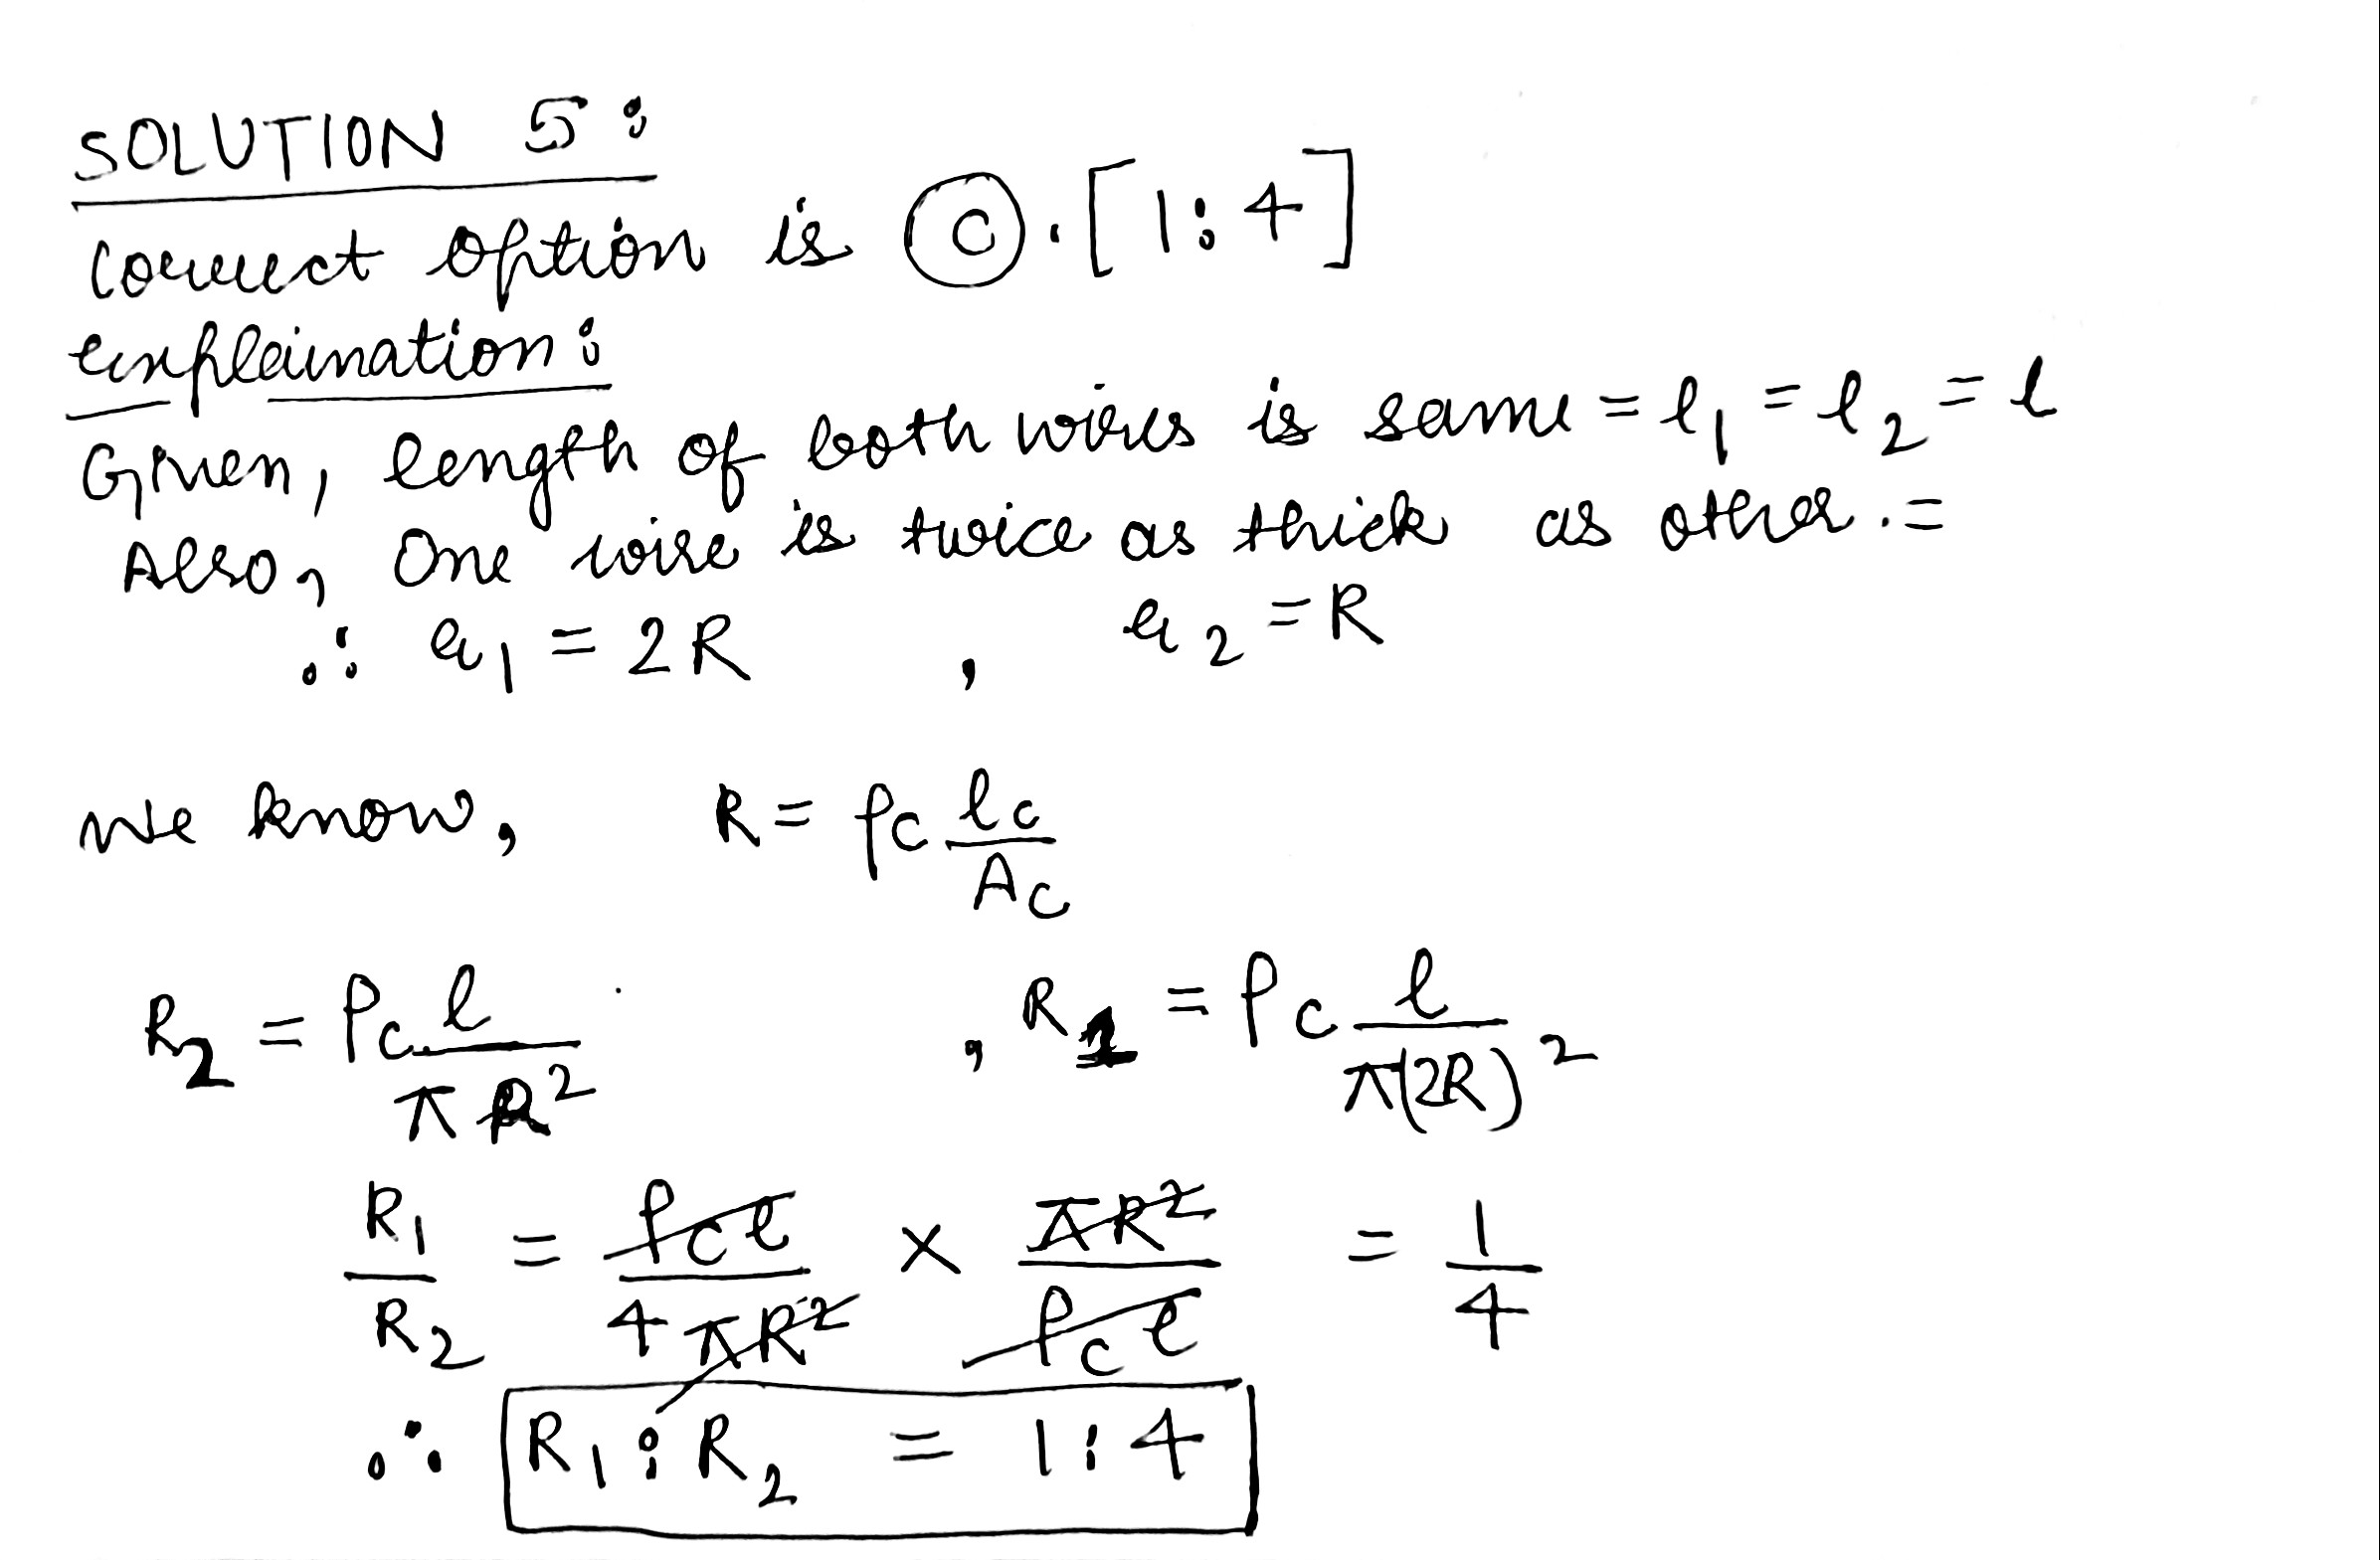 SOLUTION 5:
Correct option is (C). [1:4]
explaination:
Given, length of both wires is same = l₁ = l₂ = l
Also, One wire is twice as thick as other. =
∴ r₁ = 2R , r₂ = R
We know, R = ρc lc/Ac
R₂ = ρc l/πR² , R₁ = ρc l/π(2R)²
R₁/R₂ = ρcl/4πR² × πR²/ρcl = 1/4
∴ R₁ : R₂ = 1:4